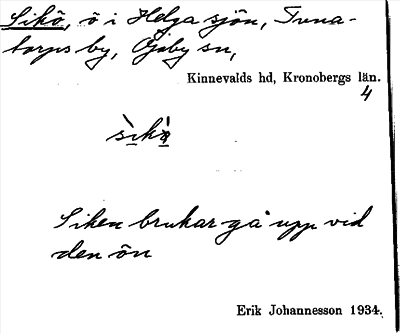 Sikö, ö i Helgasjön, Tuna-
torps by, Öjaby sn,
Kinnevalds hd, Kronobergs län.
4
Siken brukar gå upp vid
den ön
Erik Johannesson 1934.